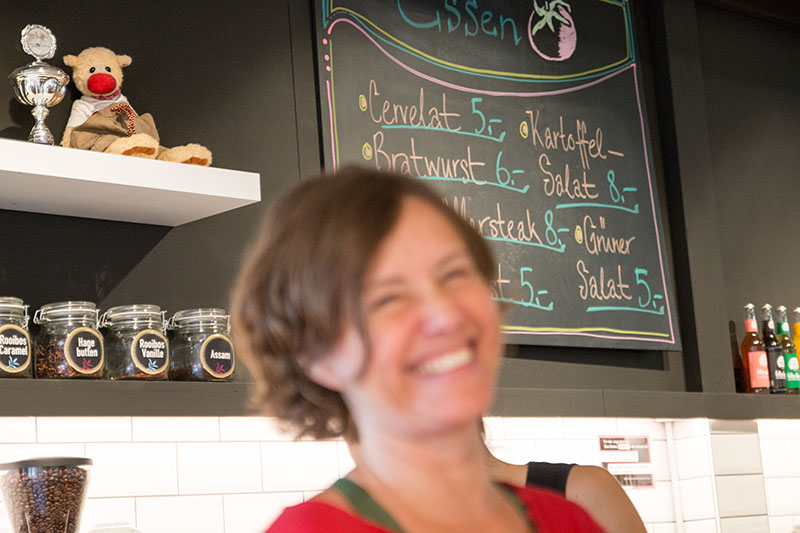 Essen
Cervelat 5.-
Bratwurst 6.-
steak 8.-
5.-
Kartoffel-
Salat 8.-
Grüner
Salat 5.-
Rooibos
Caramel
Hage
butten
Rooibos
Vanille
Assam